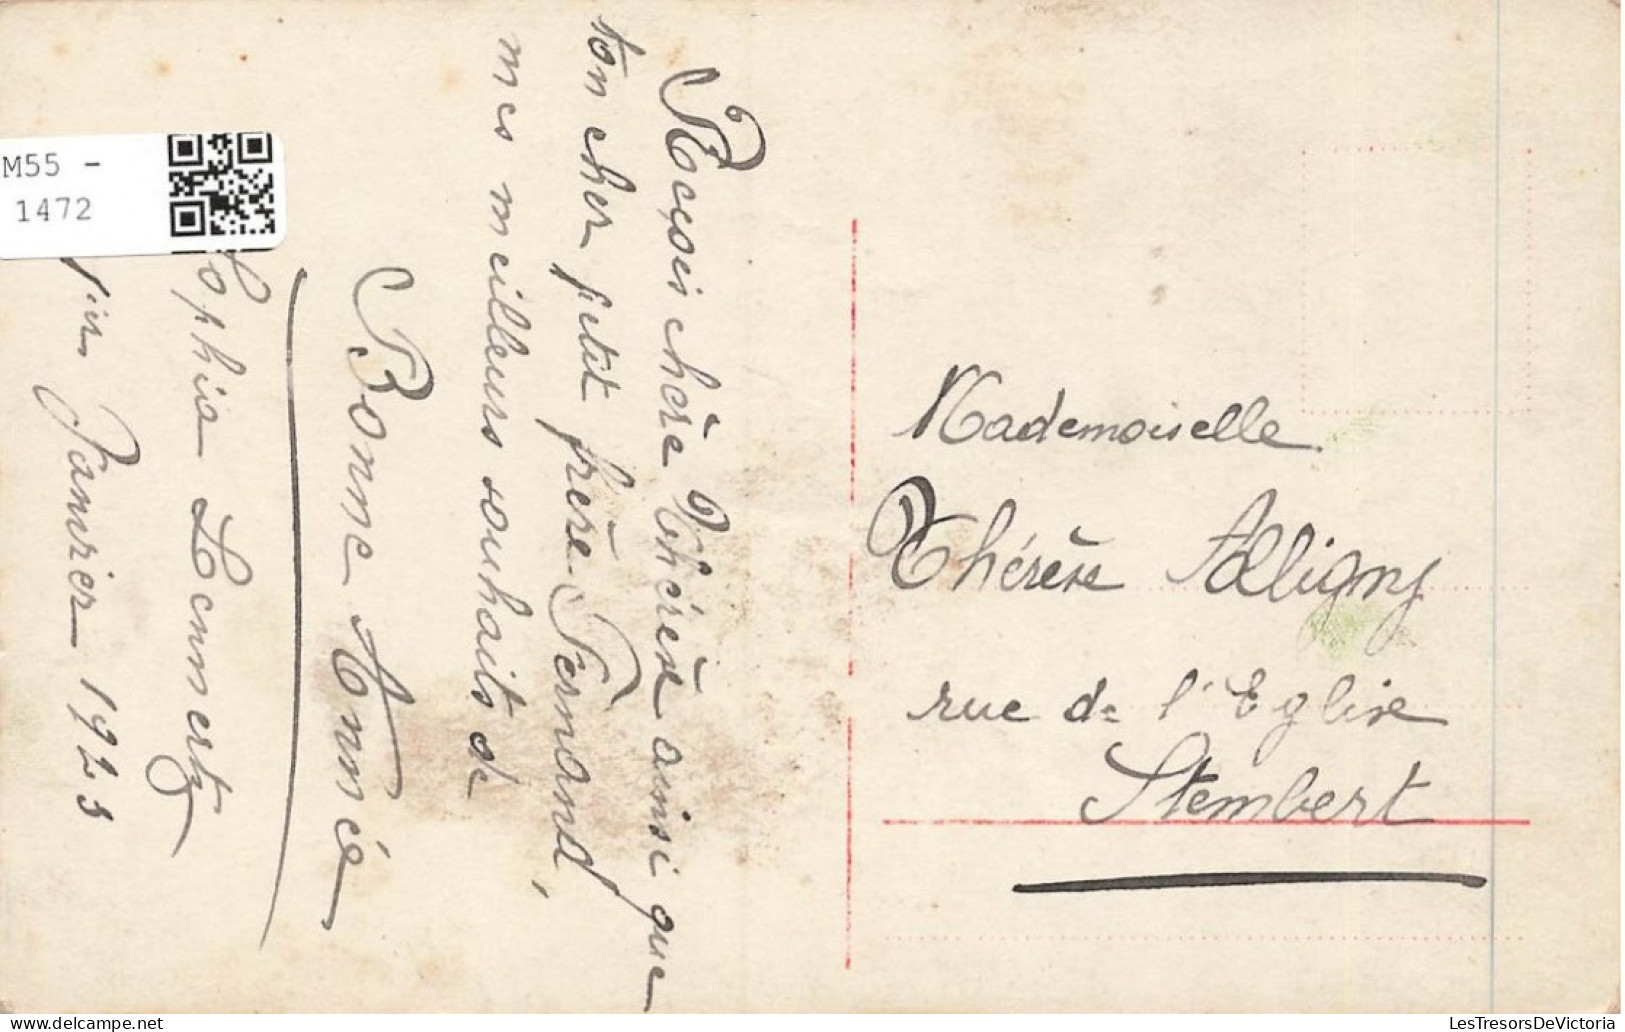 M55 -
1472
Reçois chère Thérèse ainsi que
ton cher petit frère Fernand,
mes meilleurs souhaits de
Bonne Année
Sophia Lemmertz
1ier Janvier 1923
Mademoiselle
Thérèse Alligny
rue de l'Eglise
Stembert
LesTresorsDeVictoria
LesTresorsDeVictoria